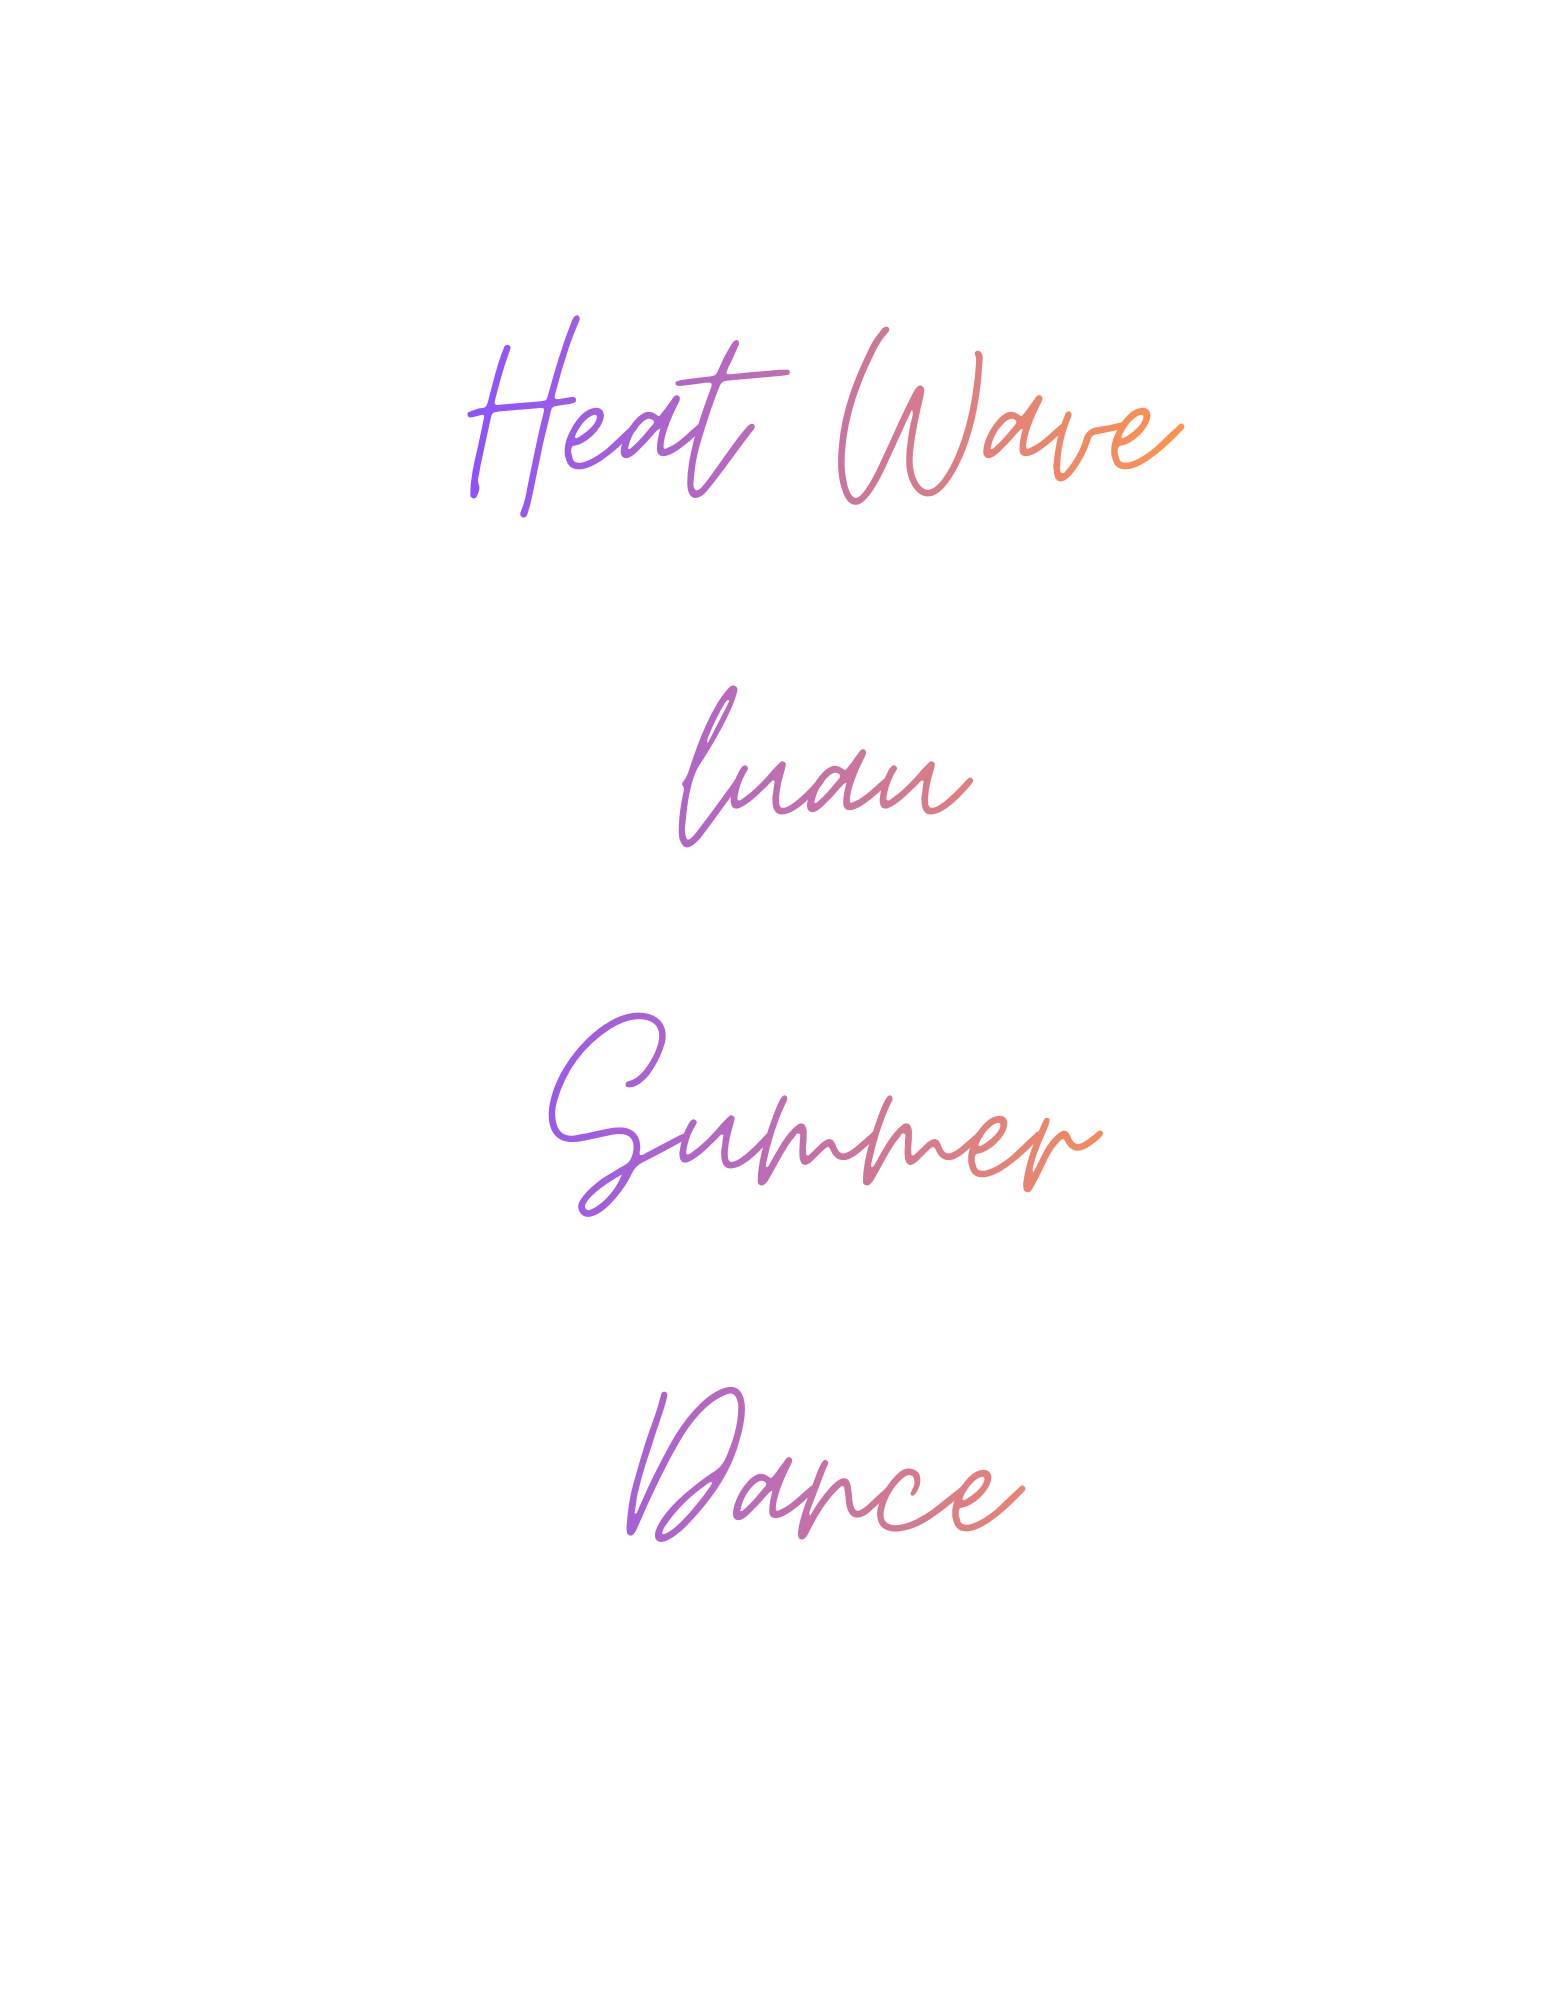 Heat Wave
Luau
Summer
Dance